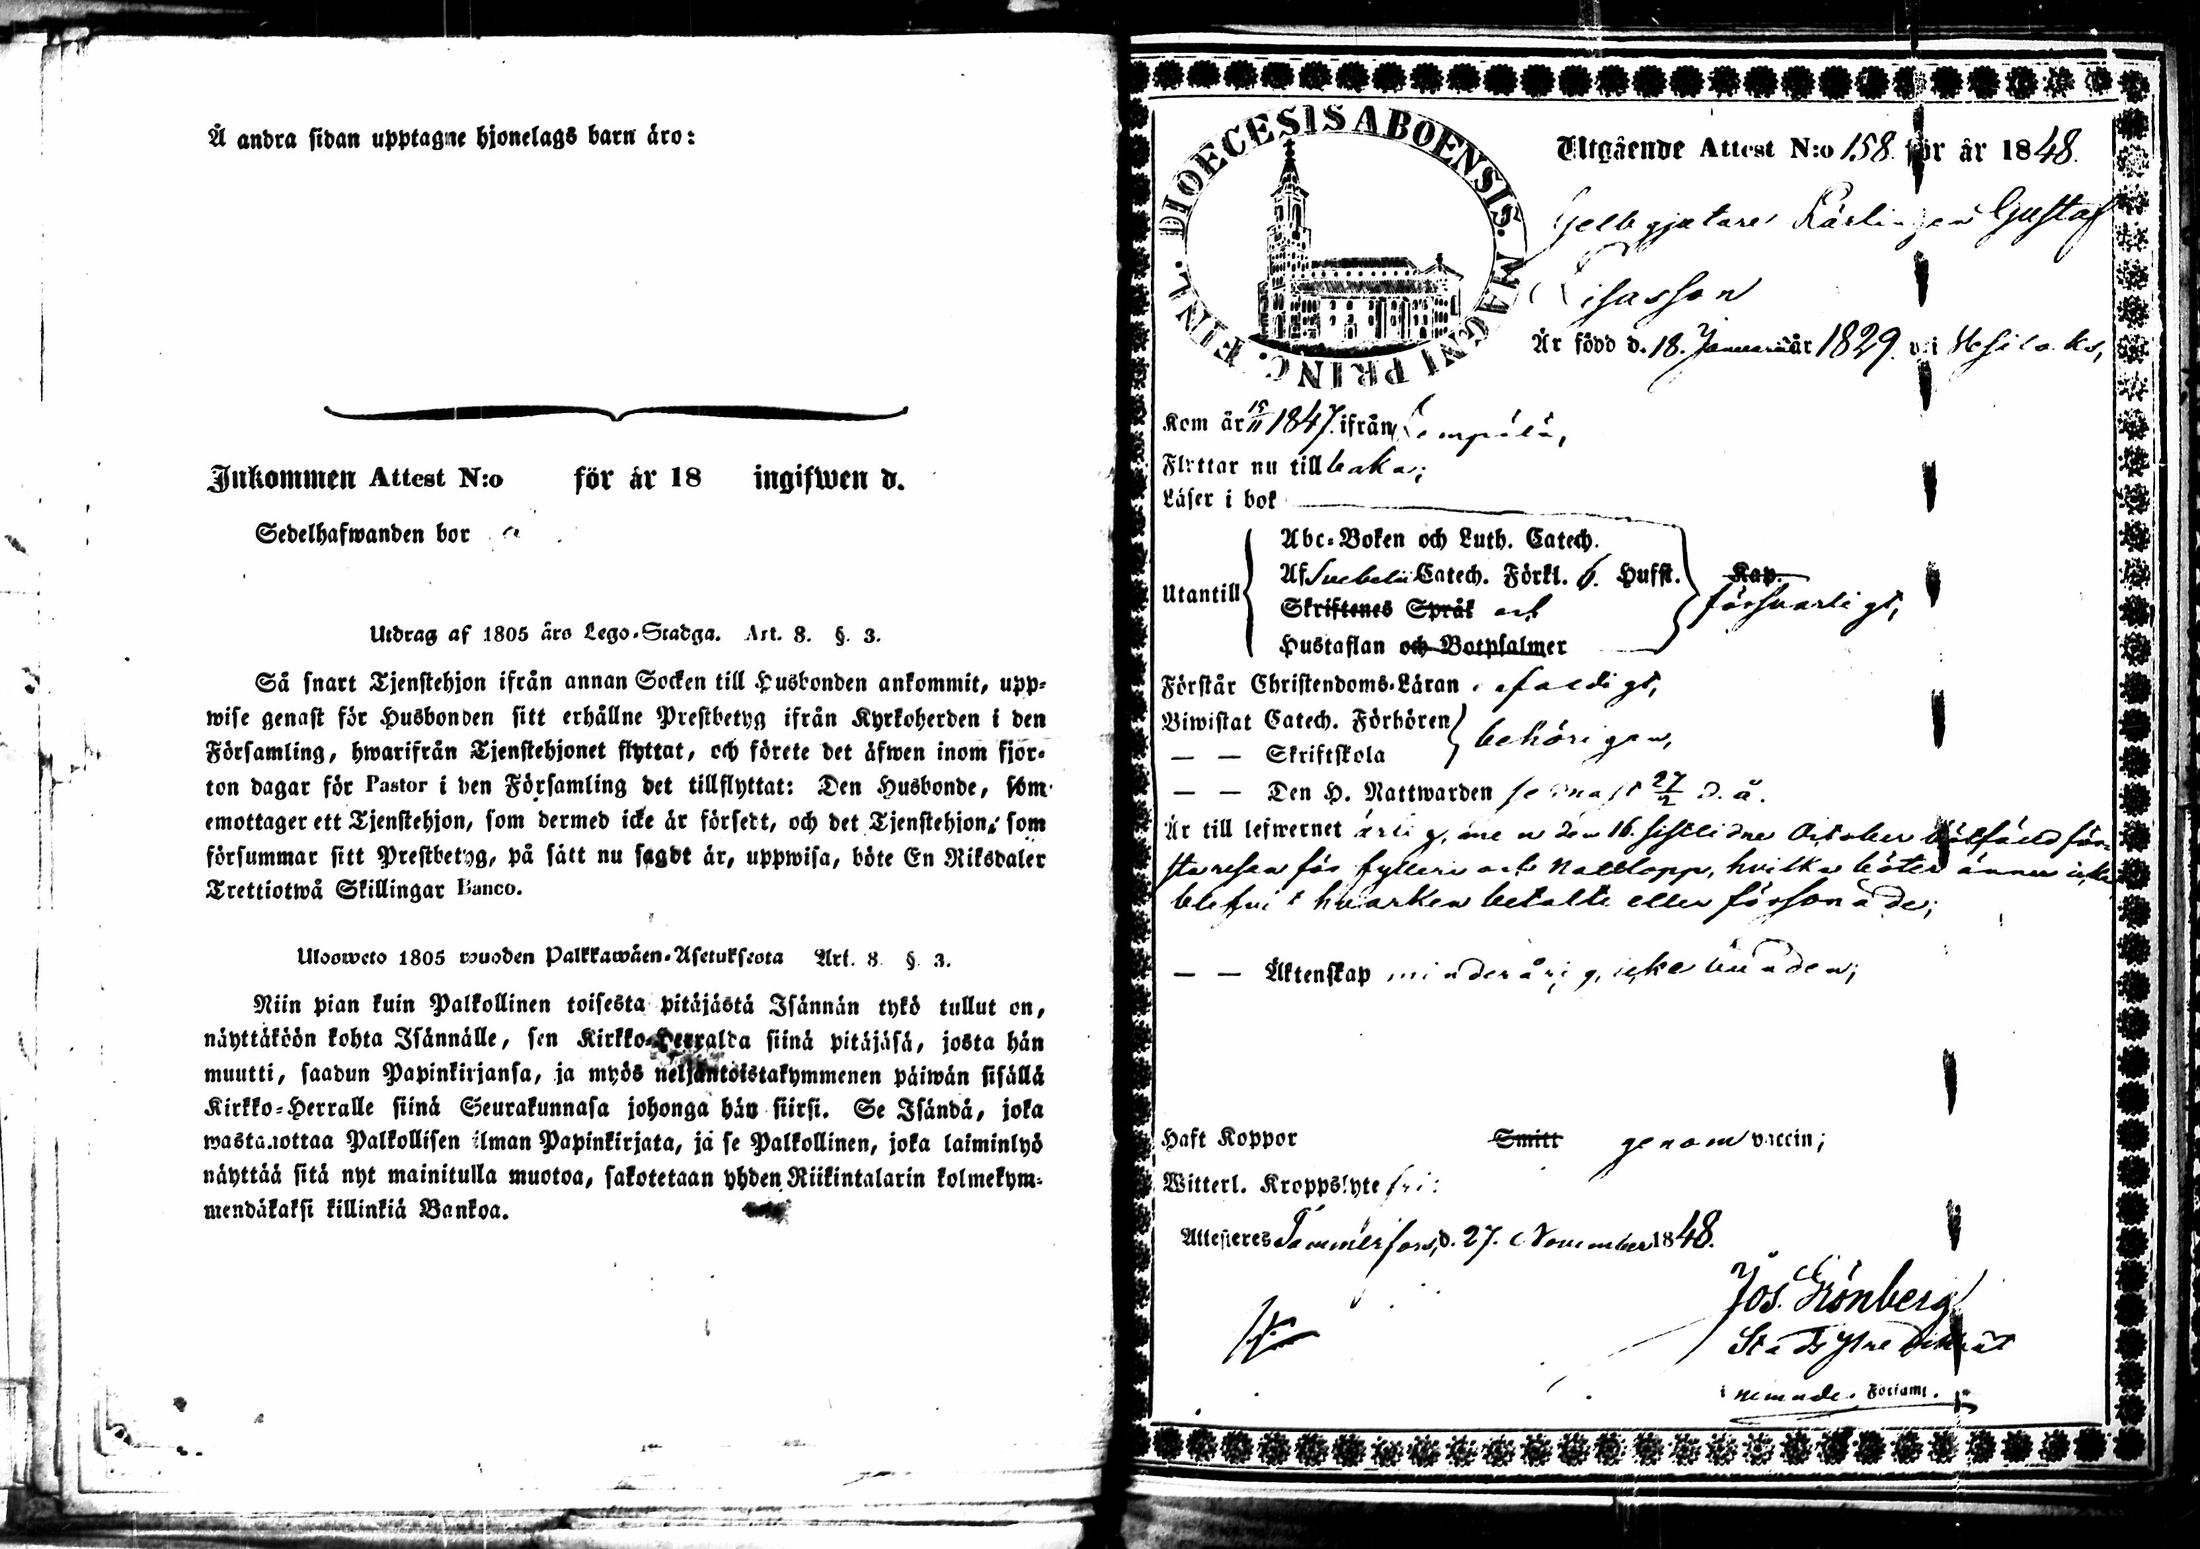 Å andra sidan upptagne hjonelags barn äro:
Inkommen Attest N:o för år 18 ingifwen d.
Sedelhafwanden bor
Utdrag af 1805 års Lego-Stadga. Art. 8. §. 3.
Så snart Tjenstehjon ifrån annan Socken till Husbonden ankommit, upp-
wise genast för Husbonden sitt erhållne Prestbetyg ifrån Kyrkoherden i den
Församling, hwarifrån Tjenstehjonet flyttat, och förete det äfwen inom fjor-
ton dagar för Pastor i den Församling det tillflyttat: Den Husbonde, som
emottager ett Tjenstehjon, som dermed icke är försedt, och det Tjenstehjon, som
försummar sitt Prestbetyg, på sätt nu sagdt är, uppwisa, böte En Riksdaler
Trettiotwå Skillingar Banco.
Ulosweto 1805 wuoden Palkkawäen-Asetuksesta Art. 8 §. 3.
Niin pian kuin Palkollinen toisesta pitäjästä Isännän tykö tullut on,
näyttäköön kohta Isännälle, sen Kirkko-Herralda siinä pitäjäsä, josta hän
muutti, saadun Papinkirjansa, ja myös neljäntoistakymmenen päiwän sisällä
Kirkko-Herralle siinä Seurakunnasa johonga hän siirsi. Se Isändä, joka
wastanottaa Palkollisen ilman Papinkirjata, ja se Palkollinen, joka laiminlyö
näyttää sitä nyt mainitulla muotoa, sakotetaan yhden Riikintalarin kolmekym-
mendäkaksi killinkiä Bankoa.
DIOECESIS ABOENSIS. MAGNI PRINC. FINL.
Utgående Attest N:o 158. för år 1848.
Gustaf
Är född d. 18. Januarii år 1829. i
Kom år 15/11 1847. ifrån Lempälä,
Flyttar nu tillbaka;
Läser i bok
Utantill
Abc-Boken och Luth. Catech.
Af Svebelii Catech. Förkl. 6. Hufst.
Skriftenes Språk och
Hustaflan och Botpsalmer
Kap.
försvarligt,
Förstår Christendoms-Läran enfaldigt,
Biwistat Catech. Förhören
— — Skriftskola
behörigen,
— — Den H. Nattwarden senast 27/2 d. å.
Är till lefwernet ärlig, men den 16. sistlidne October bötfäld för-
sta resan för fylleri och hvilka böter ännu icke
blefvit hvarken betalte eller försonade;
— — Äktenskap minderårig, icke bunden;
Haft Koppor Smitt genom vaccin;
Witterl. Kroppslyte fri:
Attesteres Tammerfors, d. 27. November 1848.
Jos. Grönberg
Stadspredikant
i nemnde Församl.